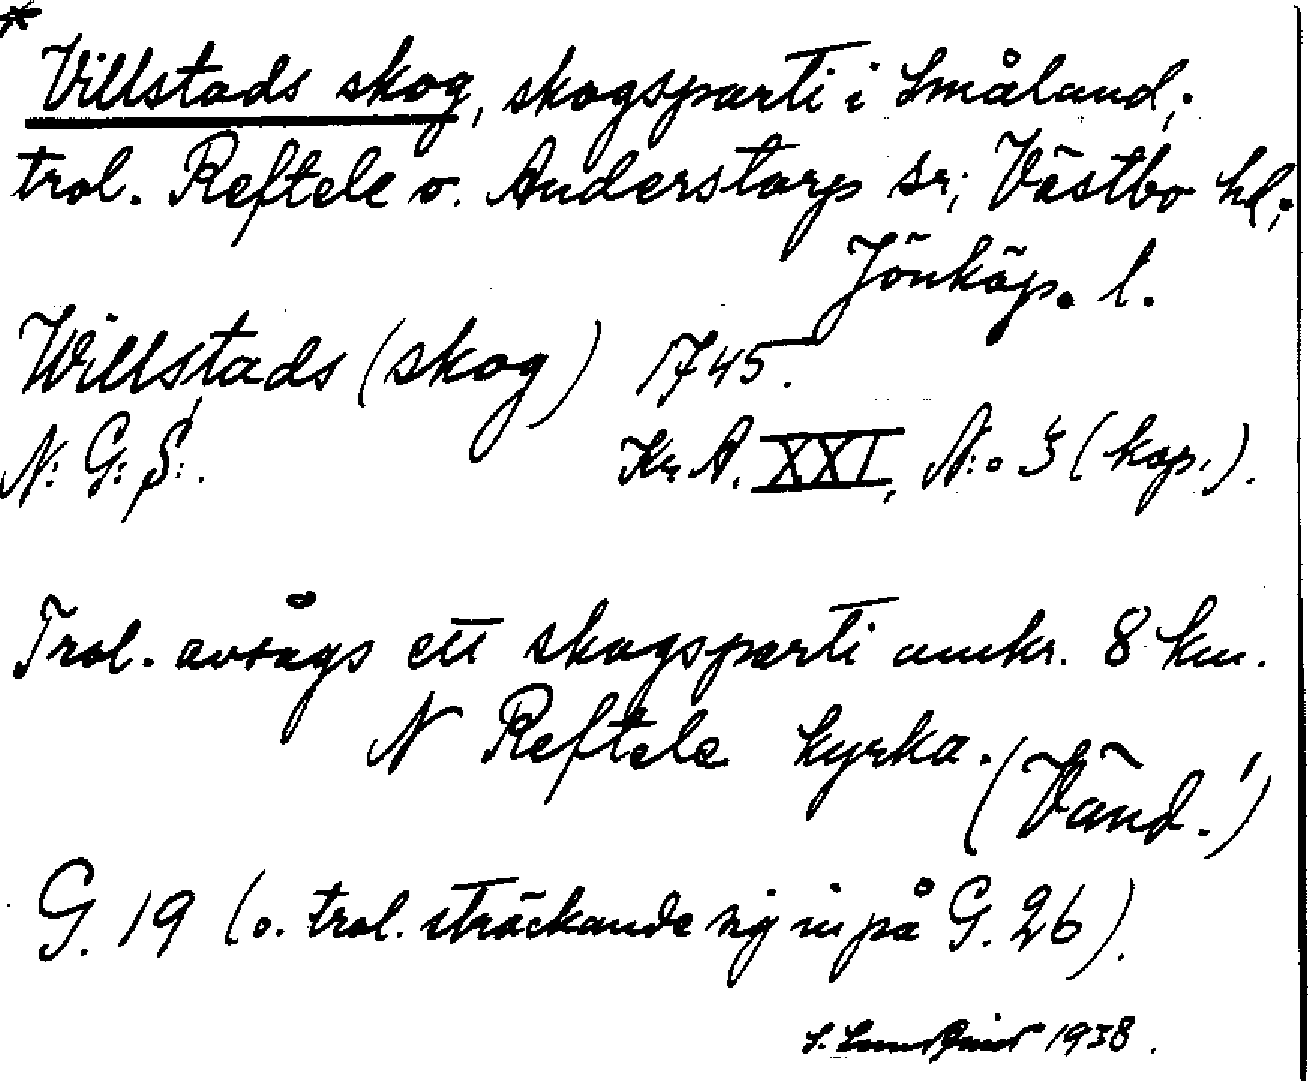 *
Villstads skog, skogsparti i Småland;
trol. Reftele o. Anderstorp sr; Västbo hd;
Jönköp. l.
Willstads (skog) 1745.
N: G: S:. Kr. A. XXI, N:o 3 (kop.).
Trol. avsågs ett skogsparti omkr. 8 km.
N Reftele kyrka. (Vänd.!)
G. 19 (o. trol. sträckande sig in på G. 26).
1938.